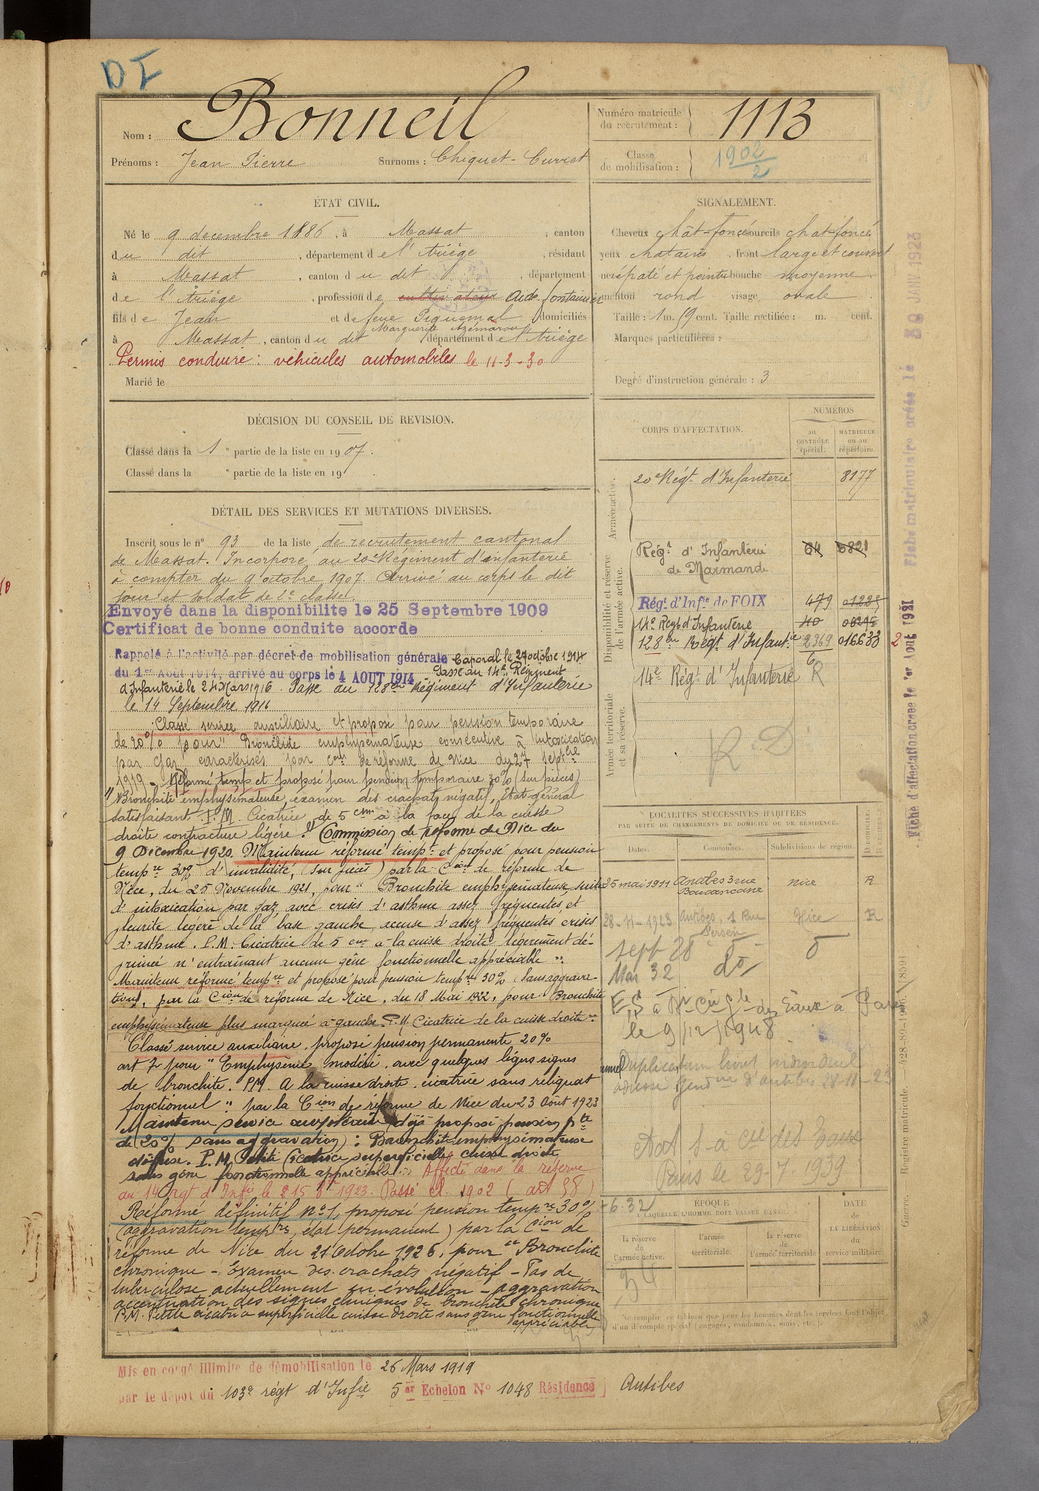 DI
Nom : Bonneil
Numéro matricule du recrutement : 1113
Prénoms : Jean Pierre Surnoms : Chiquet-
Classe de mobilisation : 1902/2
ÉTAT CIVIL.
Né le 9 decembre 1886, à Massat, canton
du dit, département de l'Ariège, résidant
à Massat, canton du dit, département
de l'Ariège, profession de aide fontainier
fils de Jean et de feue Piquemal domiciliés
Marguerite
à Massat, canton du dit département de l'Ariège
Permis conduire : véhicules automobiles le 11-3-30
Marié le
SIGNALEMENT.
Cheveux chât-foncé sourcils chat-foncé
yeux chatains, front large et couvert
nez épaté et pointu bouche moyenne
menton rond visage ovale
Taille : 1 m. cent. Taille rectifiée : m. cent.
Marques particulières :
Degré d'instruction générale : 3
DÉCISION DU CONSEIL DE REVISION.
Classé dans la 1 e partie de la liste en 1907.
Classé dans la e partie de la liste en 19
CORPS D'AFFECTATION.
NUMÉROS
AU CONTRÔLE spécial.
MATRICULE ou au répertoire.
Armée active.
20e Régt d'Infanterie 8177
Disponibilité et réserve de l'armée active.
Régt d'Infanterie de Marmande 64 6821
Régt d'Infie de FOIX 479
14e Régt d'Infanterie
128eme Régt d'Infantie 2369 016633
14e Régt d'Infanterie R
Armée territoriale et sa réserve.
R D
DÉTAIL DES SERVICES ET MUTATIONS DIVERSES.
Inscrit sous le n° 93 de la liste de recrutement cantonal
de Massat. Incorporé au 20e Régiment d'infanterie
à compter du 9 octobre 1907. Arrivé au corps le dit
jour et soldat de 2e classe.
Envoyé dans la disponibilite le 25 Septembre 1909
Certificat de bonne conduite accorde
Rappelé à l'activité par décret de mobilisation générale Caporal le 29 octobre 1914
du 1er Aout 1914, arrivé au corps le 4 AOUT 1914 Passé au 14e Régiment
d'Infanterie le 24 Mars 1916 Passé au 128eme Régiment d'Infanterie
le 14 Septembre 1916
Classé service auxiliaire et proposé pour pension temporaire
de 20% pour "Bronchite emphysémateuse consecutive à intoxication
par gaz caractérisés par Con de réforme de Nice du 27 septbre
1919. Réformé temp et proposé pour pension temporaire 30% (sur pièces)
"Bronchite emphysémateuse, examen des crachats négatif, Etat général
satisfaisant P.M. Cicatrice de 5 cm à la face de la cuisse
droite contracture légère." Commission de réforme de Nice du
9 Décembre 1920. Maintenu réformé tempre et proposé pour pension
tempre 30% d'invalidité, (sur pièces) par la Cion de réforme de
Nice, du 25 Novembre 1921, pour "Bronchite emphysémateuse suite
d'intoxication par gaz avec crises d'asthme assez fréquentes et
pleurite légère de la base gauche accuse d'assez fréquentes crises
d'asthme. P.M. Cicatrice de 5 cm à la cuisse droite légèrement dé-
primée n'entraînant aucune gêne fonctionnelle appréciable".
Maintenu réformé tempre et proposé pour pension tempre 30% (sans aggrava-
tion), par la Cion de réforme de Nice, du 18 Mai 1922, pour "Bronchite
emphysémateuse plus marquée à gauche P.M. Cicatrice de la cuisse droite"
Classé service auxiliaire, proposé pension permanente 20%
art 7 pour "Emphysème modéré, avec quelques légers signes
de bronchite. P.M. A la cuisse droite, cicatrice sans reliquat
fonctionnel." par la Cion de réforme de Nice du 23 Août 1923
Maintenu service auxiliaire (déjà proposé pension pte
de 20% sans aggravation) : Bronchite emphysémateuse
diffuse. P.M. Petite cicatrice superficielle cuisse droite
sans gêne fonctionnelle appréciable. Affecté dans la réserve
au 14 rgt d'Infie le 1923. Passé cl. 1902 (art 58)
Réformé définitif N°1, proposé pension tempre 30%
(aggravation tempre, état permanent) par la Cion de
réforme de Nice du 21 Octobre 1926, pour "Bronchite
chronique - Examen des crachats négatif - Pas de
tuberculose actuellement en évolution - aggravation
accentuation des signes cliniques de bronchite chronique
P.M. Petite cicatrice superficielle cuisse droite sans gêne fonctionnelle
appréciable
LOCALITÉS SUCCESSIVES HABITÉES
PAR SUITE DE CHANGEMENTS DE DOMICILE OU DE RÉSIDENCE.
Dates. Communes. Subdivisions de région.
25 mai 1911 Antibes 3 rue Nice R
28-11-1923 Antibes, 1 Rue Nice R
sept 28 do
Mai 32 do
le 9/12/1948
Duplicatum livret individuel
adressé Gendrie d'Antibes 28-11-23
Paris le 29-7-1939
ÉPOQUE
À LAQUELLE L'HOMME DOIT PASSER DANS
la réserve de l'armée active.
l'armée territoriale.
la réserve de l'armée territoriale
DATE de LA LIBÉRATION du service militaire.
Ne remplir ce tableau que pour les hommes dont les services font l'objet
d'un décompte spécial (engagés, condamnés, omis, etc.).
Mis en congé illimité de démobilisation le 26 Mars 1919
par le dépôt du 103e régt d'Infie 5ar Echelon N° 1048 Résidence Antibes
Fiche matricutaire créée le 30 JAN 1923
Fiche d'affectation créée le 1er Aout 1921
Guerre. Registre matricule.